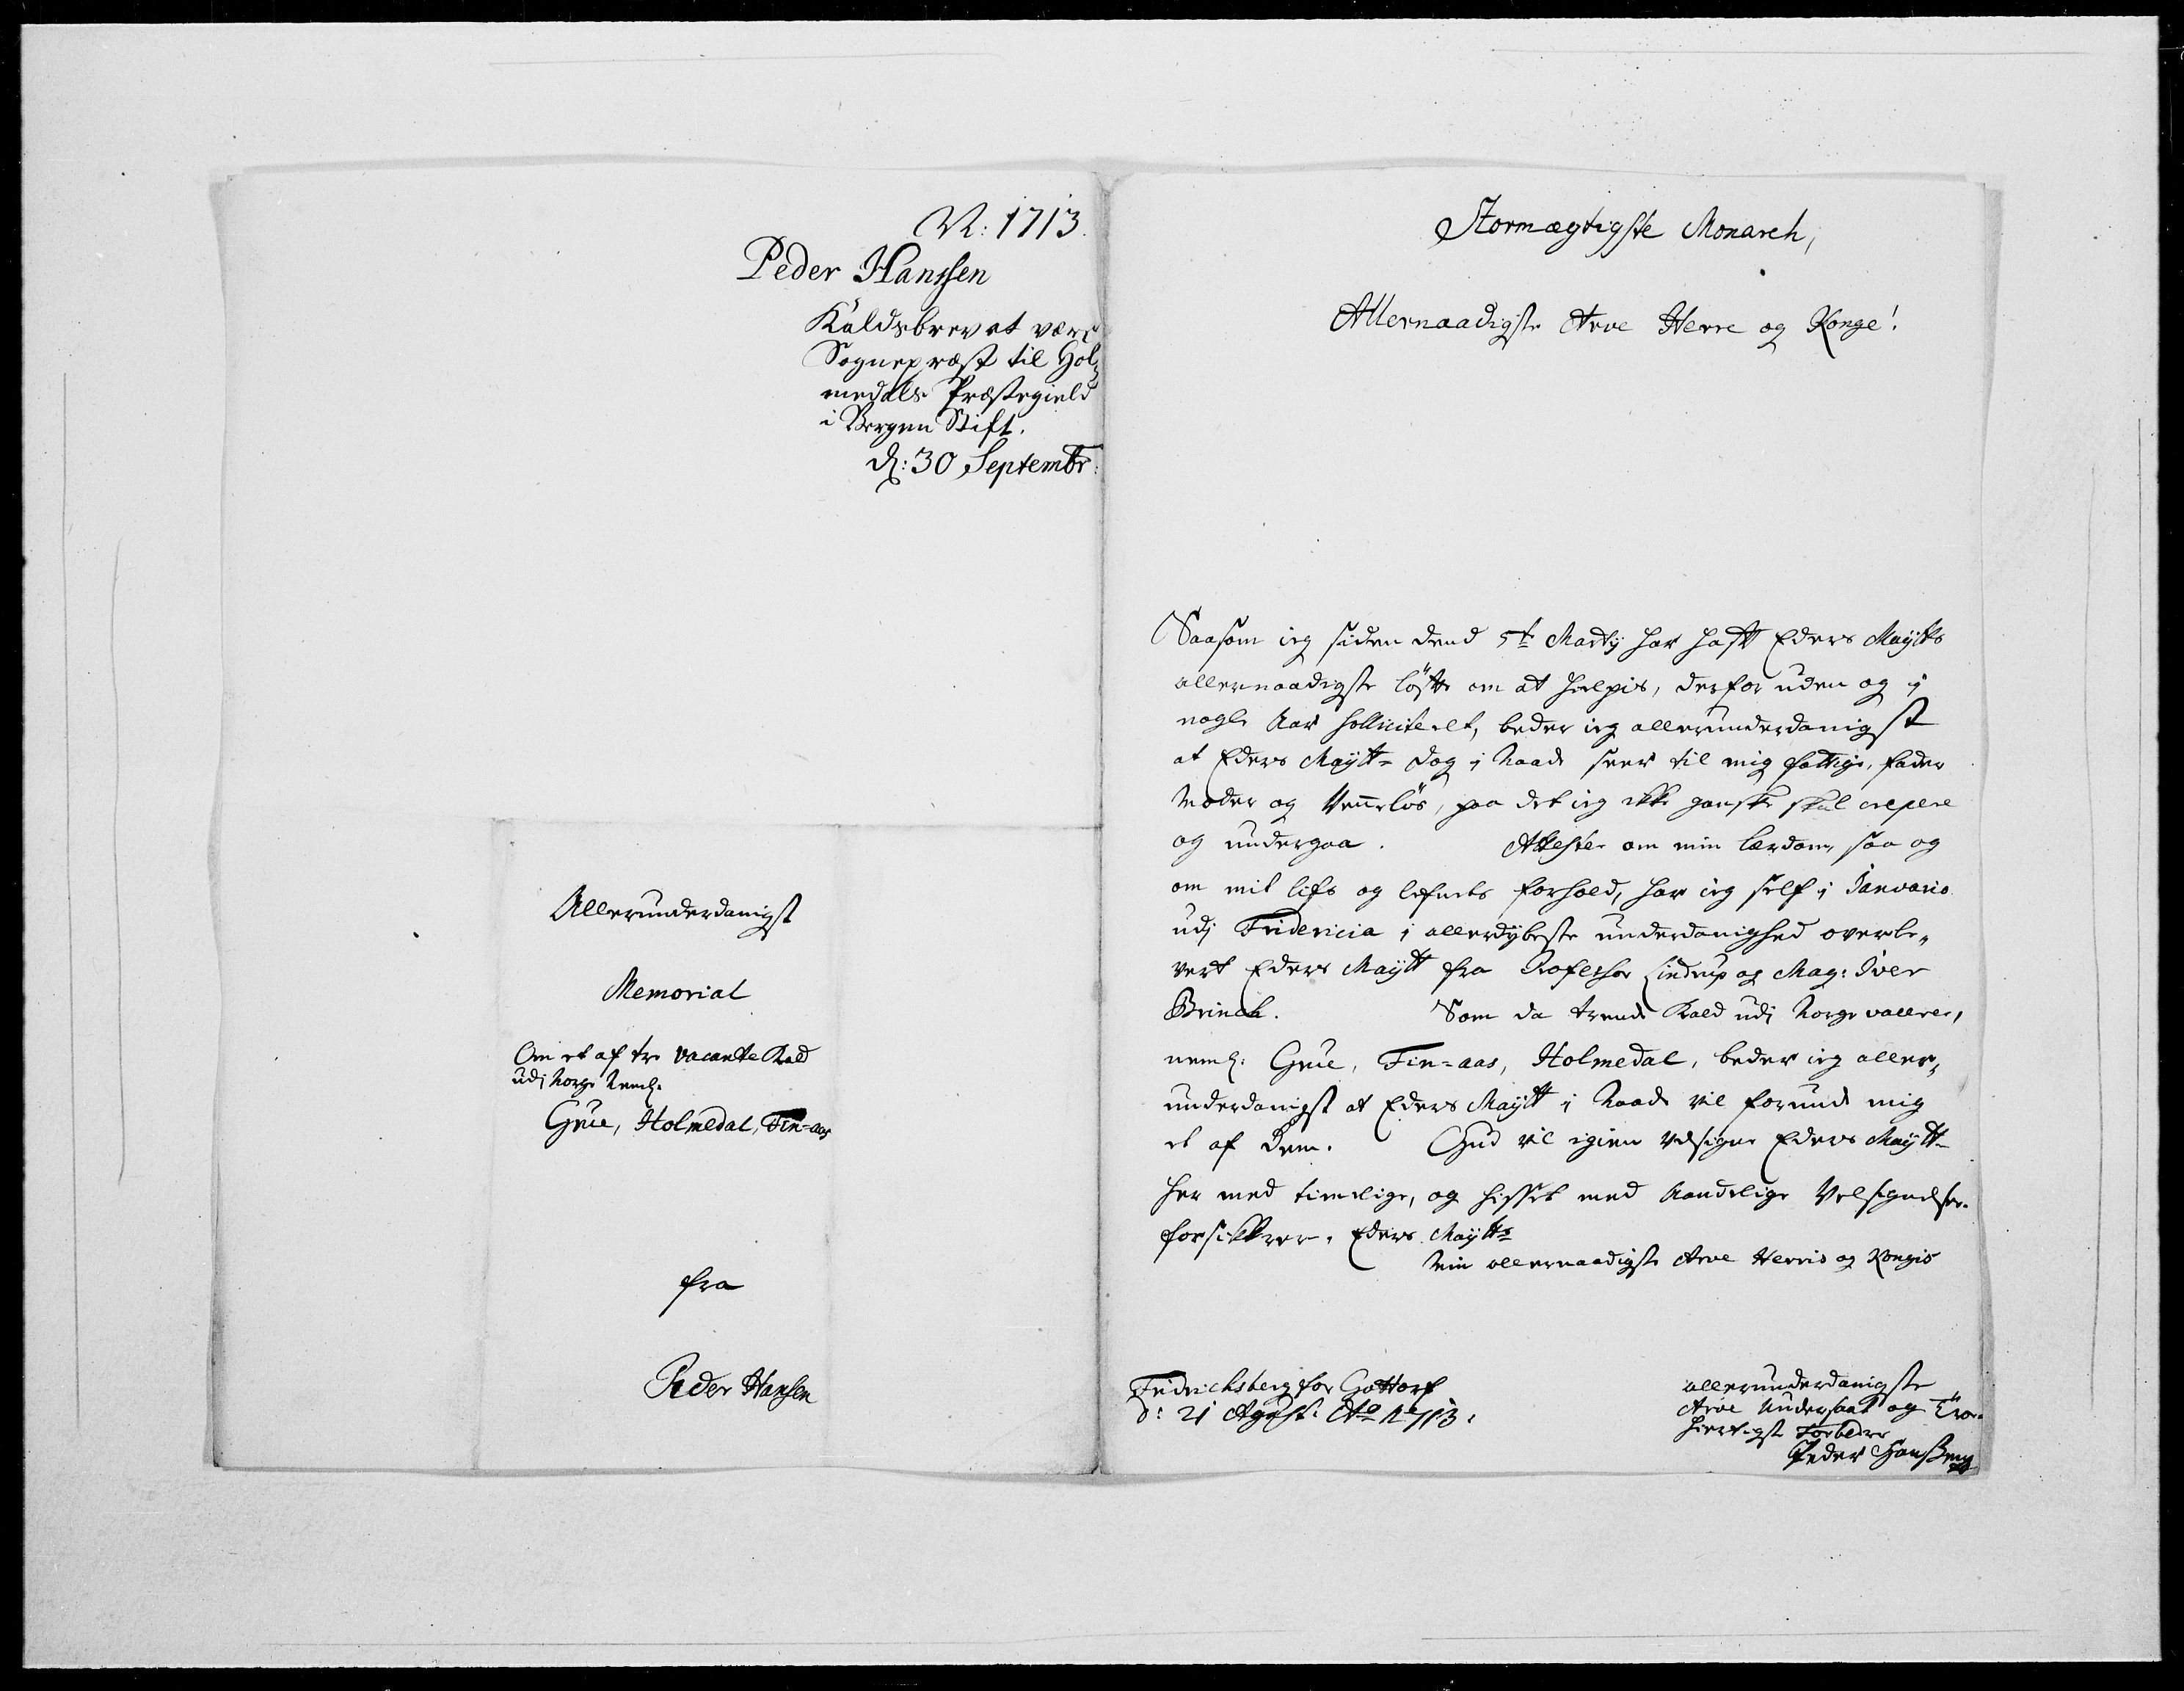 N: 1713.
Peder Hanssen
Kaldsbrev at være
Sognepræst til Hol-
medals Præstegield
i Bergen Stift.
d: 30 Septembr:
Allerunderdanigst
Memorial
Om et af tre vacante Kald
udj Norge Neml:
Grue, Holmedal, Fin-aas
fra
Peder Hansen
Stormægtigste Monarch,
Allernaadigste Arve Herre og Konge!
Saasom ieg siden dend 5te Martij har hafft Eders Maytts
allernaadigste løffte om at hielpis, derfor uden og i
nogle Aar solliciteret, beder ieg allerunderdanigst
at Eders Maytt- dog i Naade seer til mig fattige, fader
Moder og Venneløs, paa det ieg ikke ganske skal crepere
og undergaa. Attester om min lærdom, saa og
om mit lifs og lefnets forhold, har ieg self i Januario
udj Fridericia i allerdybeste underdanighed overle-
vert Eders Maytt fra Professor Lindrup og Mag: Iver
Brinck. Som da trende Kald udj Norge vallerer,
neml: Grue, Fin-aas, Holmedal, beder ieg aller-
underdanigst at Eders Maytt i Naade vil forunde mig
et af dem. Gud vil igien velsigne Eders Maytt-
her med timelige, og hisset med Aandelige Velsignelser.
forsikkrer. Eders Maytts
Min allernaadigste Arve Herris og Kongis
Fridrichsberg for Gottorf
d: 21 Agust: Ao 1713.
allerunderdanigste
Arve Undersaat og Troe-
hiertigste Forbedere
Peder Hanssen